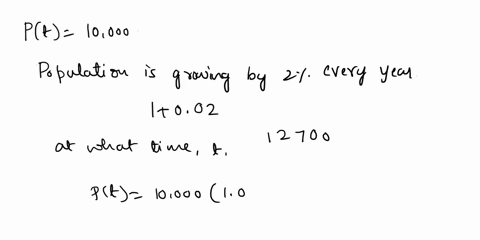 P(t) = 10,000
Population is growing by 2% every year.
1+0.02
at what time, t. 12700
P(t) = 10,000 (1.0